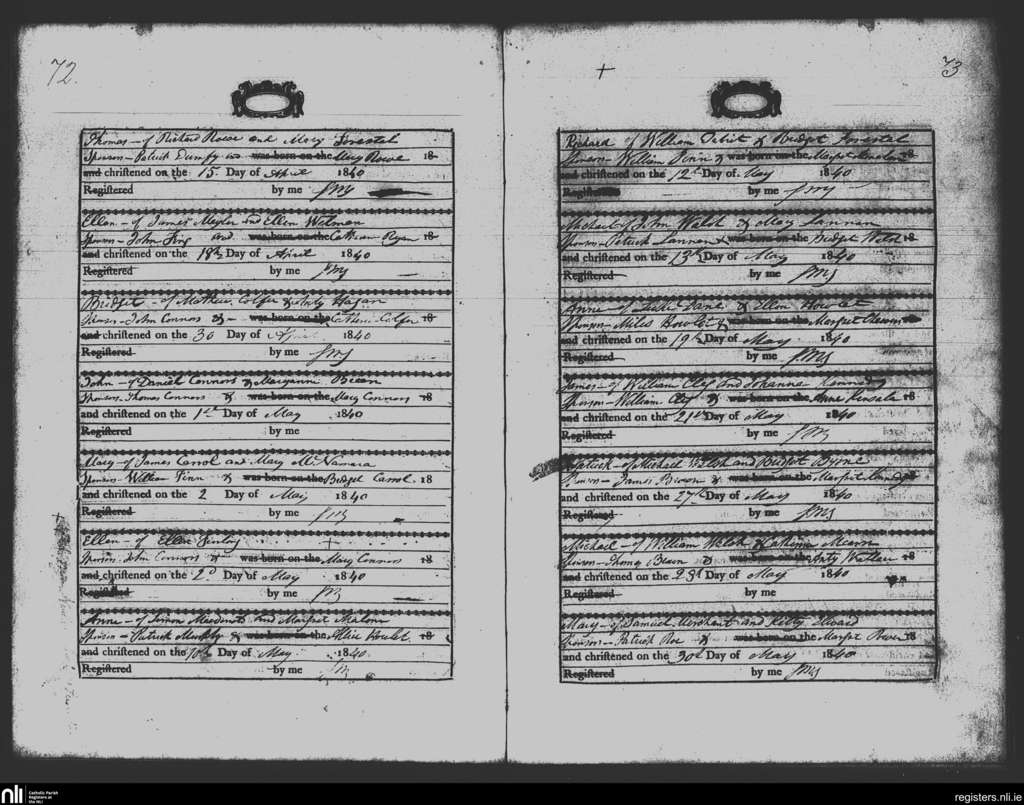 72.
Thomas - of Richard Rowe and Mary Forestal
Sponsors - Patrick Dunfy and was born on the Mary Rowe 18
and christened on the 15 Day of April 1840
Registered by me
Ellen - of James Meyler and Ellen
Sponsors - John King and was born on the Catherine Ryan 18
and christened on the 18th Day of April 1840
Registered by me
Bridget - of Mathew Colfer & Hagan
Sponsors - John Connors & - was born on the Catherine Colfer 18
and christened on the 30 Day of April 1840
Registered by me
John - of Daniel Connors & Maryanne
Sponsors - Thomas Connors & was born on the Mary Connors 18
and christened on the 1st Day of May 1840
Registered by me
Mary - of James Carrol and Mary McNamara
Sponsors William Finn & was born on the Bridget Carrol. 18
and christened on the 2 Day of May 1840
Registered by me
Ellen - of Ellen
Sponsors. John Connors & was born on the Mary Connors 18
and christened on the 2d Day of May 1840
Registered by me
Anne - of Simon and Margret Malone
Sponsors - Patrick Murphy & was born on the Alice 18
and christened on the 10th Day of May 1840
Registered by me
73
Richard of William & Bridget Forestal
Sponsors - William Finn & was born on the Margret 18
and christened on the 12th Day of May 1840
Registered by me
Michael of John Walsh & Mary Lannan
Sponsors - Patrick Lannan & was born on the Bridget Welsh 18
and christened on the 13th Day of May 1840
Registered by me
Anne - of & Ellen Howlet
Sponsors - Miles Howlet & was born on the Margret 18
and christened on the 19th Day of May 1840
Registered by me
James - of William and Johanna Kennedy
Sponsors - William & was born on the Anne Kinsela 18
and christened on the 21st Day of May 1840
Registered by me
Patrick - of Michael Welsh and Bridget Byrne
Sponsors - James & was born on the Margret 18
and christened on the 27th Day of May 1840
Registered by me
Michael - of William Welsh & Catherine
Sponsors - Thomas & was born on the Wallace 18
and christened on the 28th Day of May 1840
Registered by me
Mary - of Samuel Merchant and Kitty Edward
Sponsors - Patrick Roe & was born on the Margret Power 18
and christened on the 30th Day of May 1840
Registered by me
nli Catholic Parish
Registers at
the NLI
registers.nli.ie